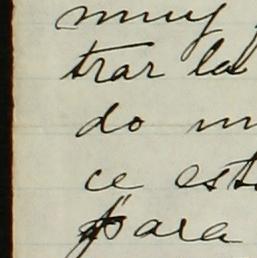 muy
trar la
do
ce
para